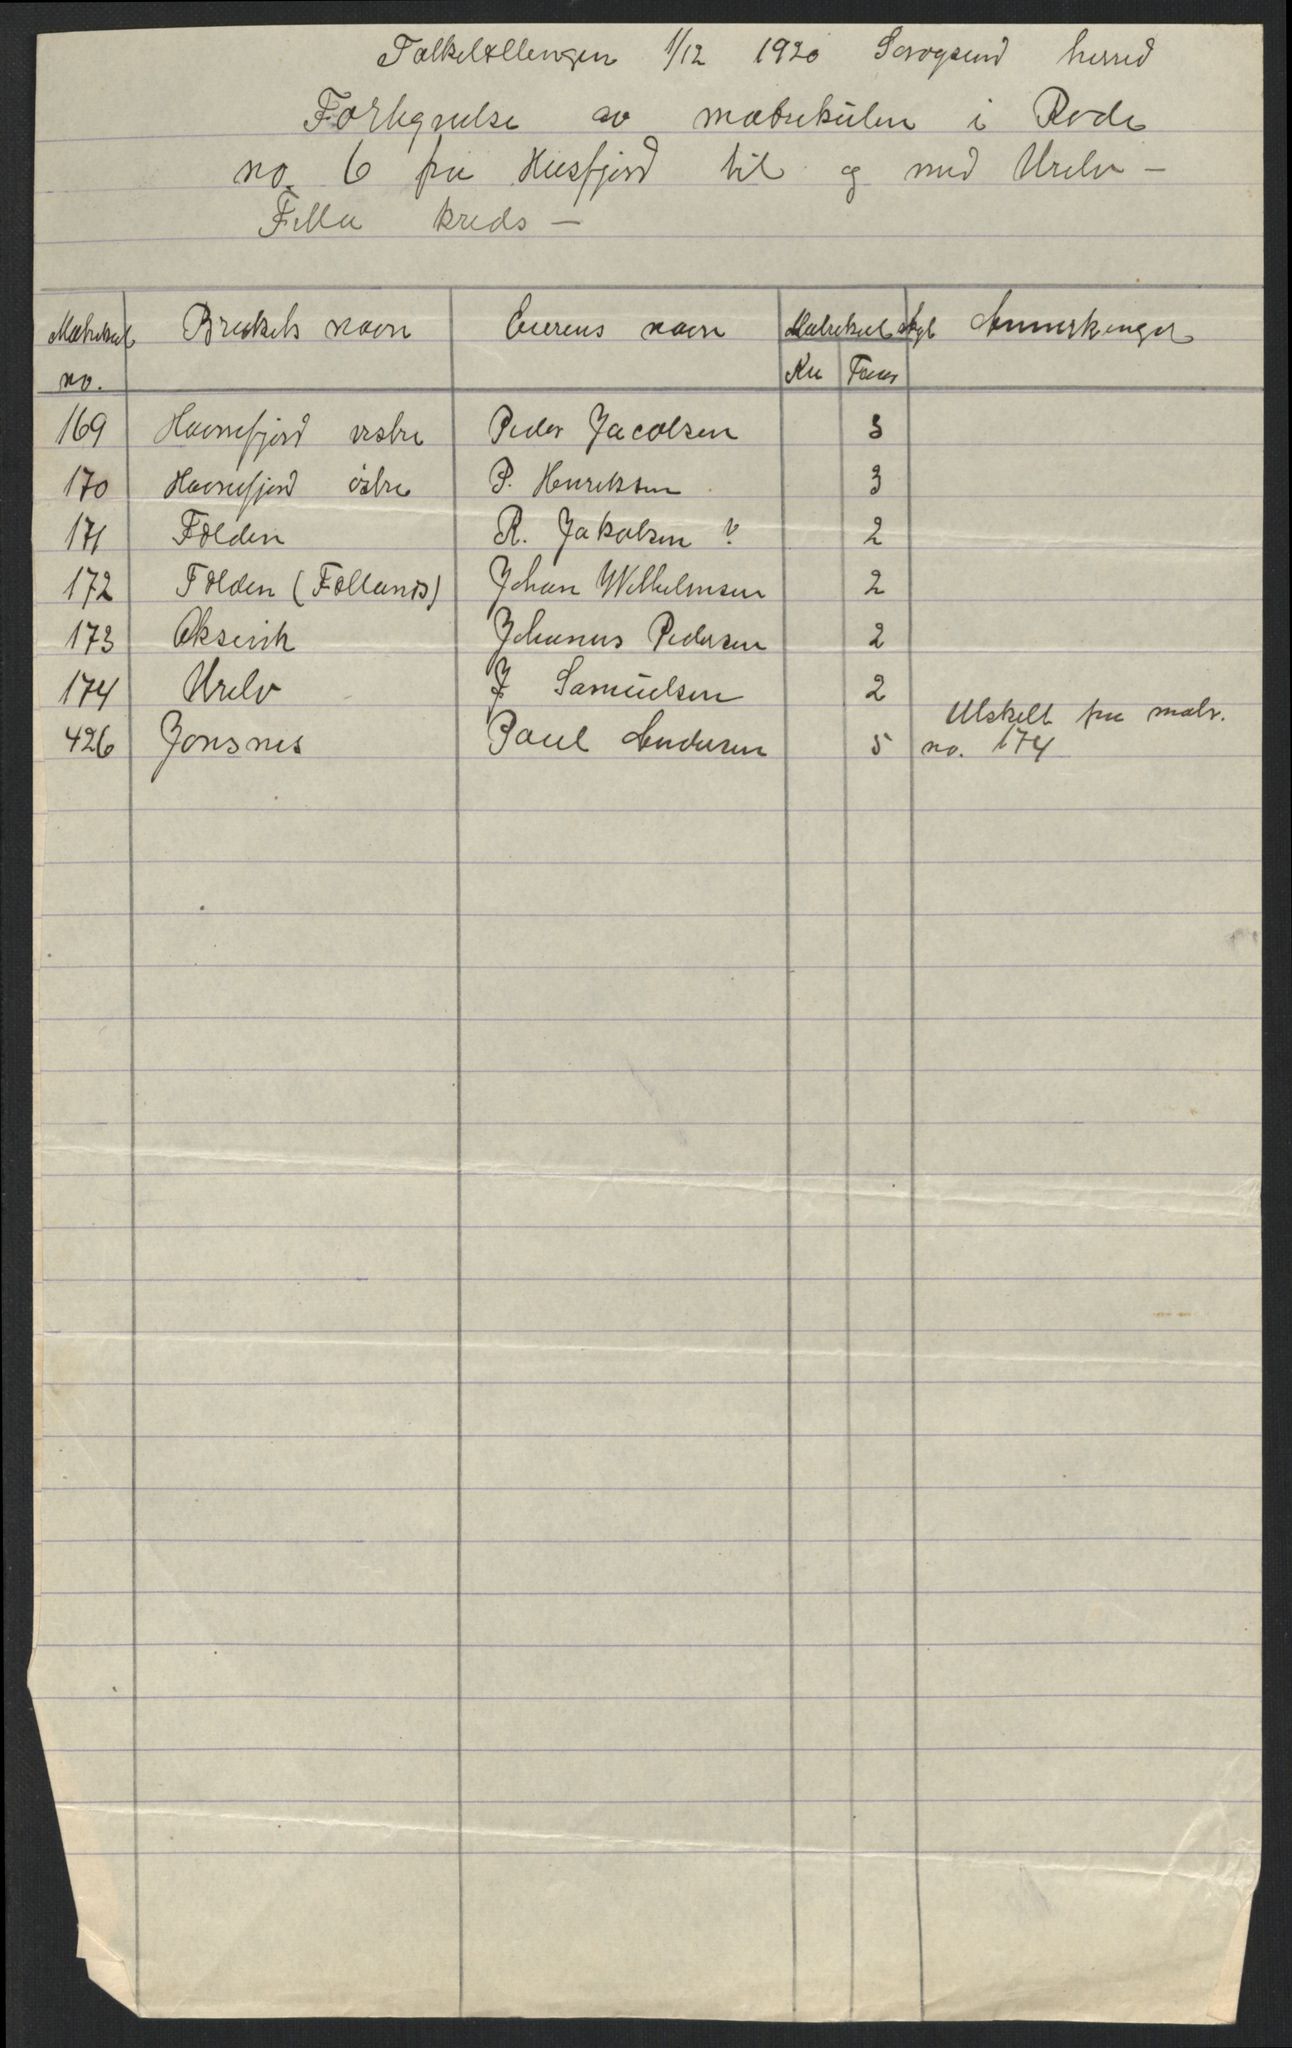 Folketellingen 1/12 1920 Sørøysund herred
Fortegnelse av matrikulen i Rode
no. 6 fra Husfjord til og med Urelv —
Fella kreds —
Matrikul no. Brukets navn Eierens navn Matrikul skyl Anmerkninger
Kr
169 Havnefjord vestre Peder Jacobsen 3
170 Havnefjord östre P. Henriksen 3
171 Folden R. Jakobsen ? 2
172 Folden (Follanes) Johan Wilhelmsen 2
173 Aksevik Johanes Pedersen 2
174 Urelv J Samuelsen 2
426 Jonsnes Paul Andersen 5 Utskilt fra matr.
no. 174